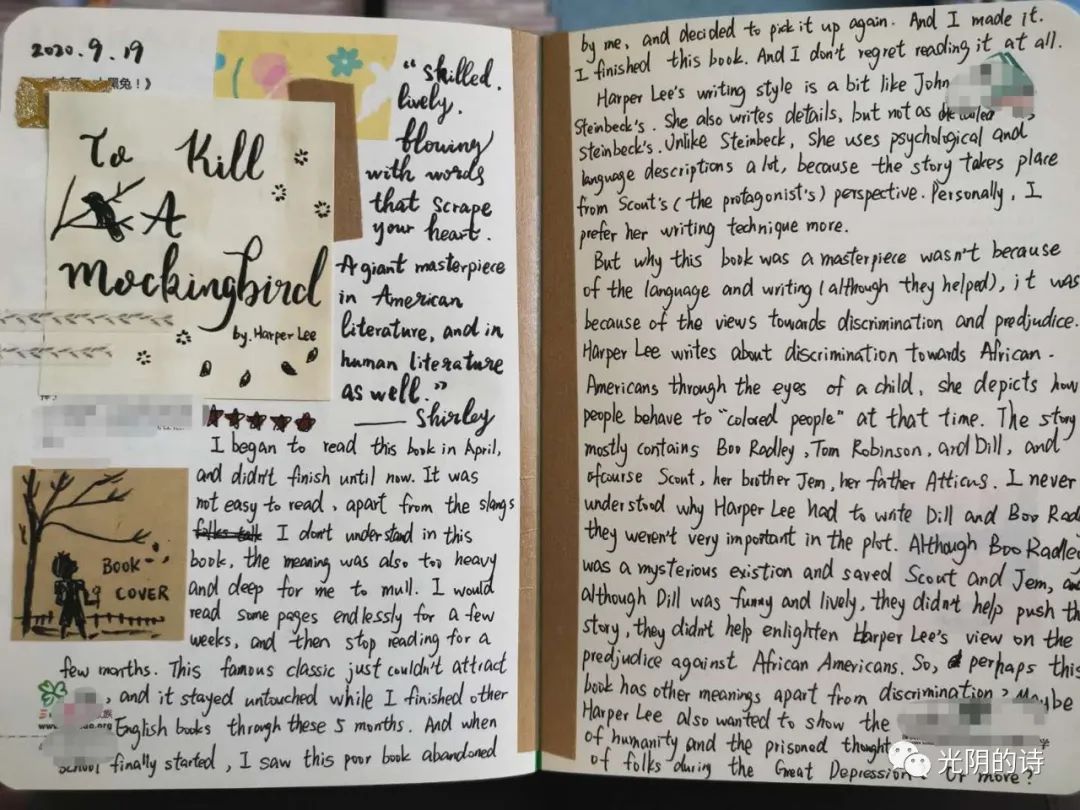 2020.9.19
黑兔！》
To Kill
A
Mockingbird
by. Harper Lee
“skilled.
lively.
blowing
with words
that scrape
your heart.
A giant masterpiece
in American
literature, and in
human literature
as well.”
—— Shirley
I began to read this book in April,
and didn't finish until now. It was
not easy to read, apart from the slangs
folks talk I don't understand in this
book, the meaning was also too heavy
and deep for me to mull. I would
read some pages endlessly for a few
weeks, and then stop reading for a
few months. This famous classic just couldn't attract
, and it stayed untouched while I finished other
English books through these 5 months. And when
School finally started, I saw this poor book abandoned
BOOK
COVER
by me, and decided to pick it up again. And I made it.
I finished this book. And I don't regret reading it at all.
Harper Lee's writing style is a bit like John
Steinbeck's. She also writes details, but not as
Steinbeck's. Unlike Steinbeck, She uses psychological and
language descriptions a lot, because the story takes place
from Scout's (the protagonist's) perspective. Personally, I
prefer her writing technique more.
But why this book was a masterpiece wasn't because
of the language and writing (although they helped), it was
because of the views towards discrimination and predjudice.
Harper Lee writes about discrimination towards African-
Americans through the eyes of a child, she depicts how
people behave to "colored people" at that time. The story
mostly contains Boo Radley, Tom Robinson, and Dill, and
ofcourse Scout, her brother Jem, her father Atticus. I never
understood why Harper Lee had to write Dill and Boo Rad
they weren't very important in the plot. Although Boo Radley
was a mysterious existion and saved Scout and Jem, and
although Dill was funny and lively, they didn't help push th
story, they didn't help enlighten Harper Lee's view on the
predjudice against African Americans. So, perhaps this
book has other meanings apart from discrimination? Maybe
Harper Lee also wanted to show the
of humanity and the prisoned thought
of folks during the Great Depression? Or more?
光阴的诗